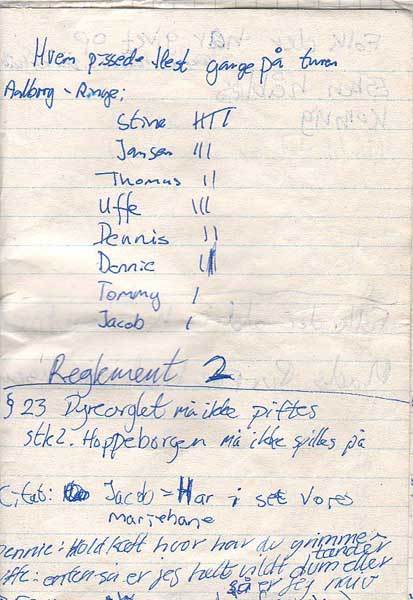 Hvem pissede flest gange på turen
Aalborg - Ringe:
Stine HHII
Jansen III
Thomas II
Uffe III
Dennis II
Dennie II
Tommy I
Jacob I
Reglement 2
§ 23 Dyreorglet må ikke piftes
stk2. Hoppeborgen må ikke spilles på
Citat: Jacob = Har i set vores
mariehane
Dennie: Hold kæft hvor har du grimme
tænder
Uffe: enten så er jeg helt vildt dum eller
så er jeg